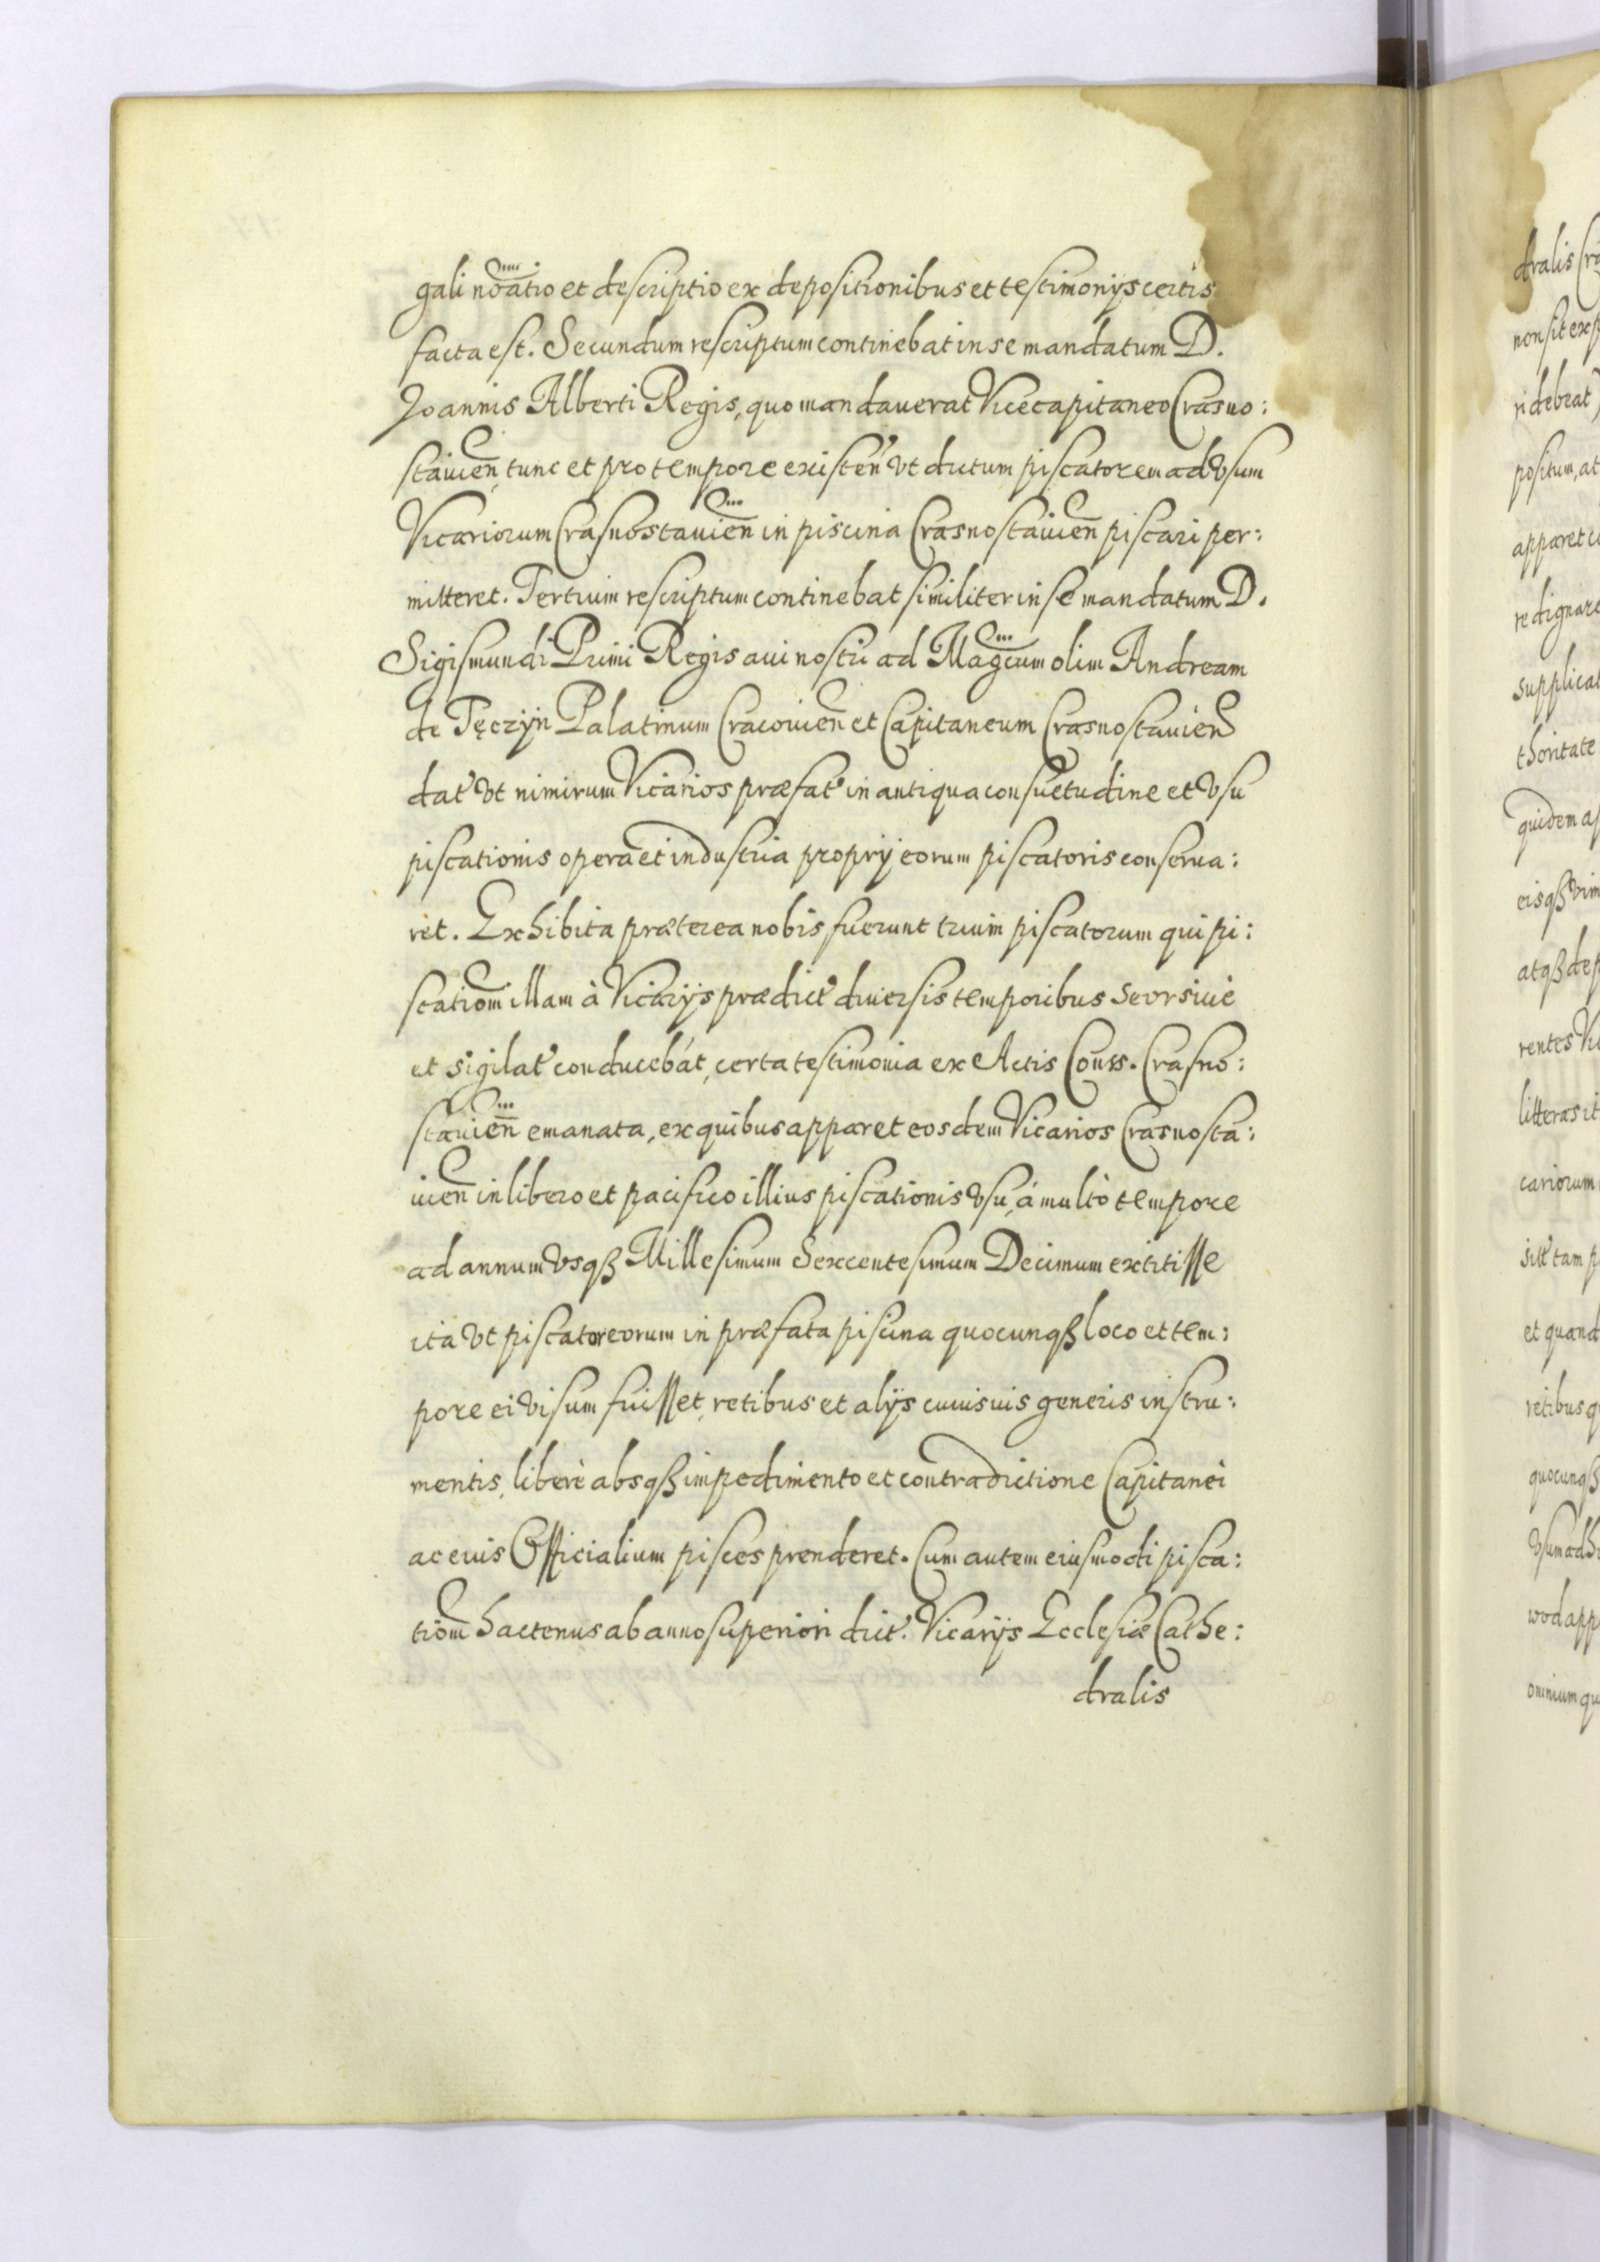 gali nōatio et descriptio ex depositionibus et testimonijs certis
facta est. Secundum rescriptum continebat in se mandatum D.
Joannis Alberti Regis, quo mandauerat Vicecapitaneo Crasno:
stauien̄, tunc et pro tempore existen̄ vt dictum piscatorem ad vsum
Vicariorum Crasnostauien̄ in piscina Crasnostauien̄ piscari per:
mitteret. Tertium rescriptum continebat similiter in se mandatum D.
Sigismundi Primi Regis aui nostri ad Mag̃cum olim Andream
de Tęczÿn Palatinum Cracouien̄ et Capitaneum Crasnostauien̄
dat' vt nimirum Vicarios præfat' in antiqua consuetudine et vsu
piscationis opera et industria proprij eorum piscatoris conserua:
ret. Exhibita præterea nobis fuerunt trium piscatorum qui pi:
scationē illam à Vicarijs prædict' diuersis temporibus seorsiué
et sigilat' conducebāt, certa testimonia ex Actis Conss. Crasno:
stauien̄ emanata, ex quibus apparet eosdem Vicarios Crasnosta:
uien̄ in libero et pacifico illius piscationis vsu, á multò tempore
ad annum vsqȝ Millesimum Sexcentesimum Decimum extitisse
ita vt piscator eorum in præfata piscina quocunqȝ loco et tem:
pore ei visum fuisset, retibus et alijs cuiusuis generis instru:
mentis, liberè absqȝ impedimento et contradictione Capitanei
ac eius Officialium pisces prenderet. Cum autem eiusmodi pisca:
tionē hactenus ab anno superiori dict'. Vicarijs Ecclesiæ Cathe:
dralis
dralis
non sit
ri debeat
positum, at
apparet
supplicat
thoritate
quidem
eisqȝ
atqȝ
rentes
litteras
cariorum
tam
et
retibus
quocunqȝ
omnium